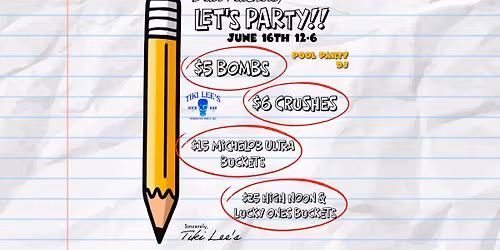 Dear Teachers,
LET'S PARTY!!
JUNE 16TH 12-6
POOL PARTY
DJ
$5 BOMBS
TIKI LEE'S
DOCK BAR
$6 CRUSHES
$15 MICHELOB ULTRA
BUCKETS
$25 HIGH NOON &
LUCKY ONES BUCKETS
Sincerely,
Tiki Lee's